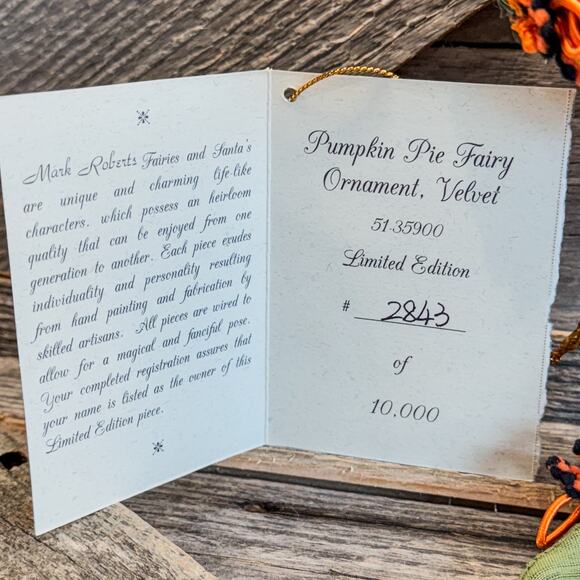 Mark Roberts Fairies and Santa's
are unique and charming life-like
characters, which possess an heirloom
quality that can be enjoyed from one
generation to another. Each piece exudes
individuality and personality resulting
from hand painting and fabrication by
skilled artisans. All pieces are wired to
allow for a magical and fanciful pose.
Your completed registration assures that
your name is listed as the owner of this
Limited Edition piece.
Pumpkin Pie Fairy
Ornament, Velvet
51-35900
Limited Edition
# 2843
of
10,000